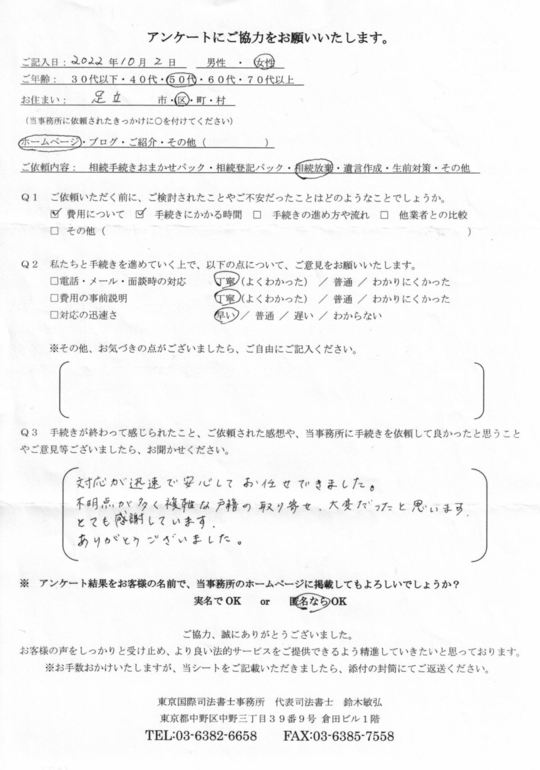 アンケートにご協力をお願いいたします。
ご記入日：2022年10月2日　男性 ・ 女性
ご年齢：３０代以下・４０代・５０代・６０代・７０代以上
お住まい：　足立　市・区・町・村
（当事務所に依頼されたきっかけに○を付けてください）
ホームページ・ブログ・ご紹介・その他（　　　　　）
ご依頼内容：　相続手続きおまかせパック・相続登記パック・相続放棄・遺言作成・生前対策・その他
Ｑ１　ご依頼いただく前に、ご検討されたことやご不安だったことはどのようなことでしょうか。
☑ 費用について　☑ 手続きにかかる時間　□ 手続きの進め方や流れ　□ 他業者との比較
□ その他（　　　　　　　　　　）
Ｑ２　私たちと手続きを進めていく上で、以下の点について、ご意見をお願いいたします。
□電話・メール・面談時の対応　丁寧（よくわかった） ／ 普通 ／ わかりにくかった
□費用の事前説明　丁寧（よくわかった） ／ 普通 ／ わかりにくかった
□対応の迅速さ　早い ／ 普通 ／ 遅い ／ わからない
※その他、お気づきの点がございましたら、ご自由にご記入ください。
Ｑ３　手続きが終わって感じられたこと、ご依頼された感想や、当事務所に手続きを依頼して良かったと思うこと
やご意見等ございましたら、お聞かせください。
対応が迅速で安心してお任せできました。
不明点が多く複雑な戸籍の取り寄せ、大変だったと思います.
とても感謝しています.
ありがとうございました。
※　アンケート結果をお客様の名前で、当事務所のホームページに掲載してもよろしいでしょうか？
実名で OK　or　匿名なら OK
ご協力、誠にありがとうございました。
お客様の声をしっかりと受け止め、より良い法的サービスをご提供できるよう精進していきたいと思っております。
※お手数おかけいたしますが、当シートをご記載いただきましたら、添付の封筒にてご返送ください。
東京国際司法書士事務所　代表司法書士　鈴木敏弘
東京都中野区中野三丁目３９番９号 倉田ビル１階
TEL:03-6382-6658　FAX:03-6385-7558